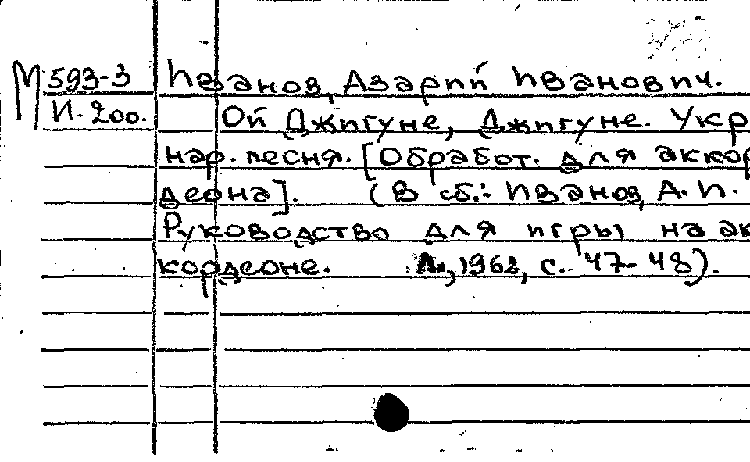 М 593-3 Иванов, Азарий Иванович.
И-200. Ой Джигуне, Джигуне. Укр
нар. песня. [Обработ. для аккор
деона]. (В сб.: Иванов, А. И.
Руководство для игры на ак
кордеоне. Л., 1962, с. 47-48).